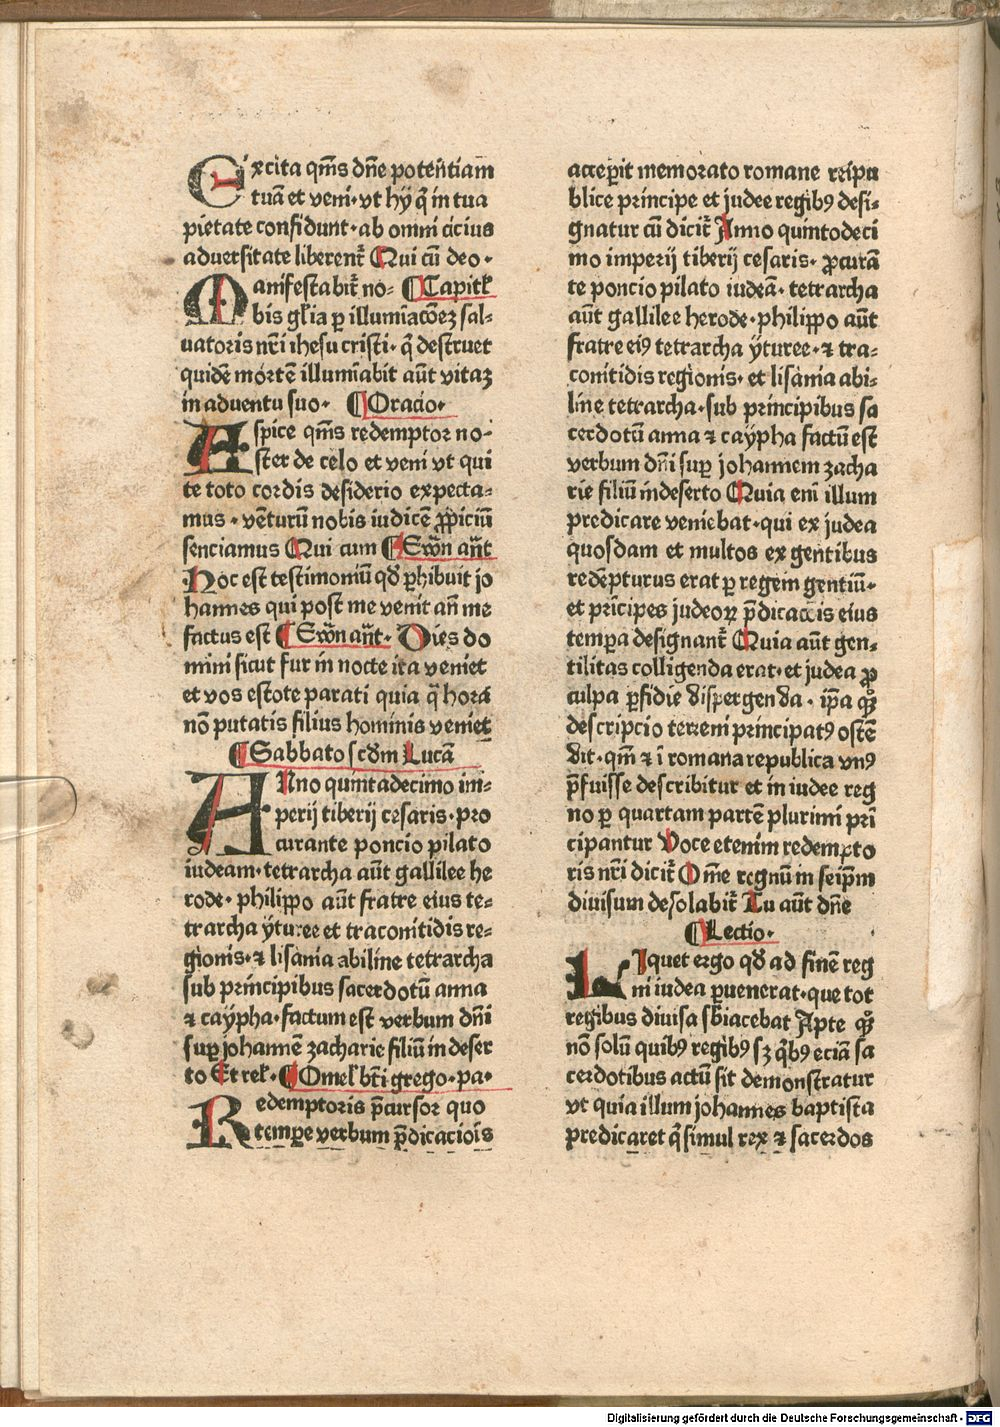 Excita qm̄s dn̄e potentiam
tuā et veni· vt hÿ q̄ in tua
pietate confidunt· ab omni cicius
aduersitate liberent᷑ Qui cū deo·
Manifestabit᷑ no⸗ ¶ Capitl̕
bis gl̄ia ꝑ illumīacōeꝫ sal⸗
uatoris nr̄i ihesu cristi· q̄ destruet
quidē mortē illumīabit aūt vitaꝫ
in aduentu suo· ¶ Oracio·
Aspice qm̄s redemptor no⸗
ster de celo et veni vt qui
te toto cordis desiderio expecta⸗
mus· vēturū nobis iudicē ꝓpiciū
senciamus Qui cum ¶ Sw̄n an̄t
Hoc est testimoniū qd̄ ꝑhibuit jo
hannes qui post me venit an̄ me
factus est ¶ Sw̄n an̄t· Dies do
mini sicut fur in nocte ita veniet
et vos estote parati quia q̄ hora
nō putatis filius hominis veniet
¶ Sabbato scd̄m Lucā
ANno quintadecimo im⸗
perij tiberij cesaris· pro
curante poncio pilato
iudeam· tetrarcha aūt gallilee he
rode· philippo aūt fratre eius te⸗
trarcha ÿturee et traconitidis re⸗
gionis· ⁊ lisania abiline tetrarcha
sub principibus sacerdotū anna
⁊ caÿpha· factum est verbum dn̄i
suꝑ johannē zacharie filiū in deser
to Et rel̕· ¶ Omel̕ bt̄i grego· pa·
Redemptoris p̄cursor quo
tempe verbum p̄dicaciois
acceꝑit memorato romane reipu
blice principe et judee regibꝰ desi⸗
gnatur cū dicit᷑ Anno quintodeci
mo imperij tiberij cesaris· ꝓcurā
te poncio pilato iudeā· tetrarcha
aūt gallilee herode· philippo aūt
fratre eiꝰ tetrarcha ÿturee· ⁊ tra⸗
conitidis regionis· et lisania abi⸗
line tetrarcha· sub principibus sa
cerdotū anna ⁊ caÿpha factū est
verbum dn̄i suꝑ johannem zacha
rie filiū in deserto Quia eni illum
predicare veniebat· qui ex judea
quosdam et multos ex gentibus
redēpturus erat ꝑ regem gentiū·
et prīcipes judeoꝝ p̄dicacōis eius
tempa designant᷑ Quia aūt gen⸗
tilitas colligenda erat· et judea ꝓ
culpa ꝑfidie dispergenda· ip̄a qꝫ̄
descripcio terreni principatꝰ ostē
dit· qm̄ ⁊ ī romana republica vnꝰ
p̄fuisse describitur et in iudee reg
no ꝑ quartam partē plurimi pri
cipantur Voce etenim redempto
ris nr̄i dicit᷑ Om̄e regnū in seip̄m
diuisum desolabit᷑ Tu aūt dn̄e
¶ Lectio·
LIquet ergo qd̄ ad finē reg
ni iudea ꝑuenerat· que tot
regibus diuisa sb̄iacebat Apte qꝫ̄
nō solū quibꝰ regibꝰ sꝫ qb̄ꝰ eciā sa
cerdotibus actū sit demonstratur
vt quia illum johannes baptista
predicaret q̄ simul rex ⁊ sacerdos
Digitalisierung gefördert durch die Deutsche Forschungsgemeinschaft - DFG